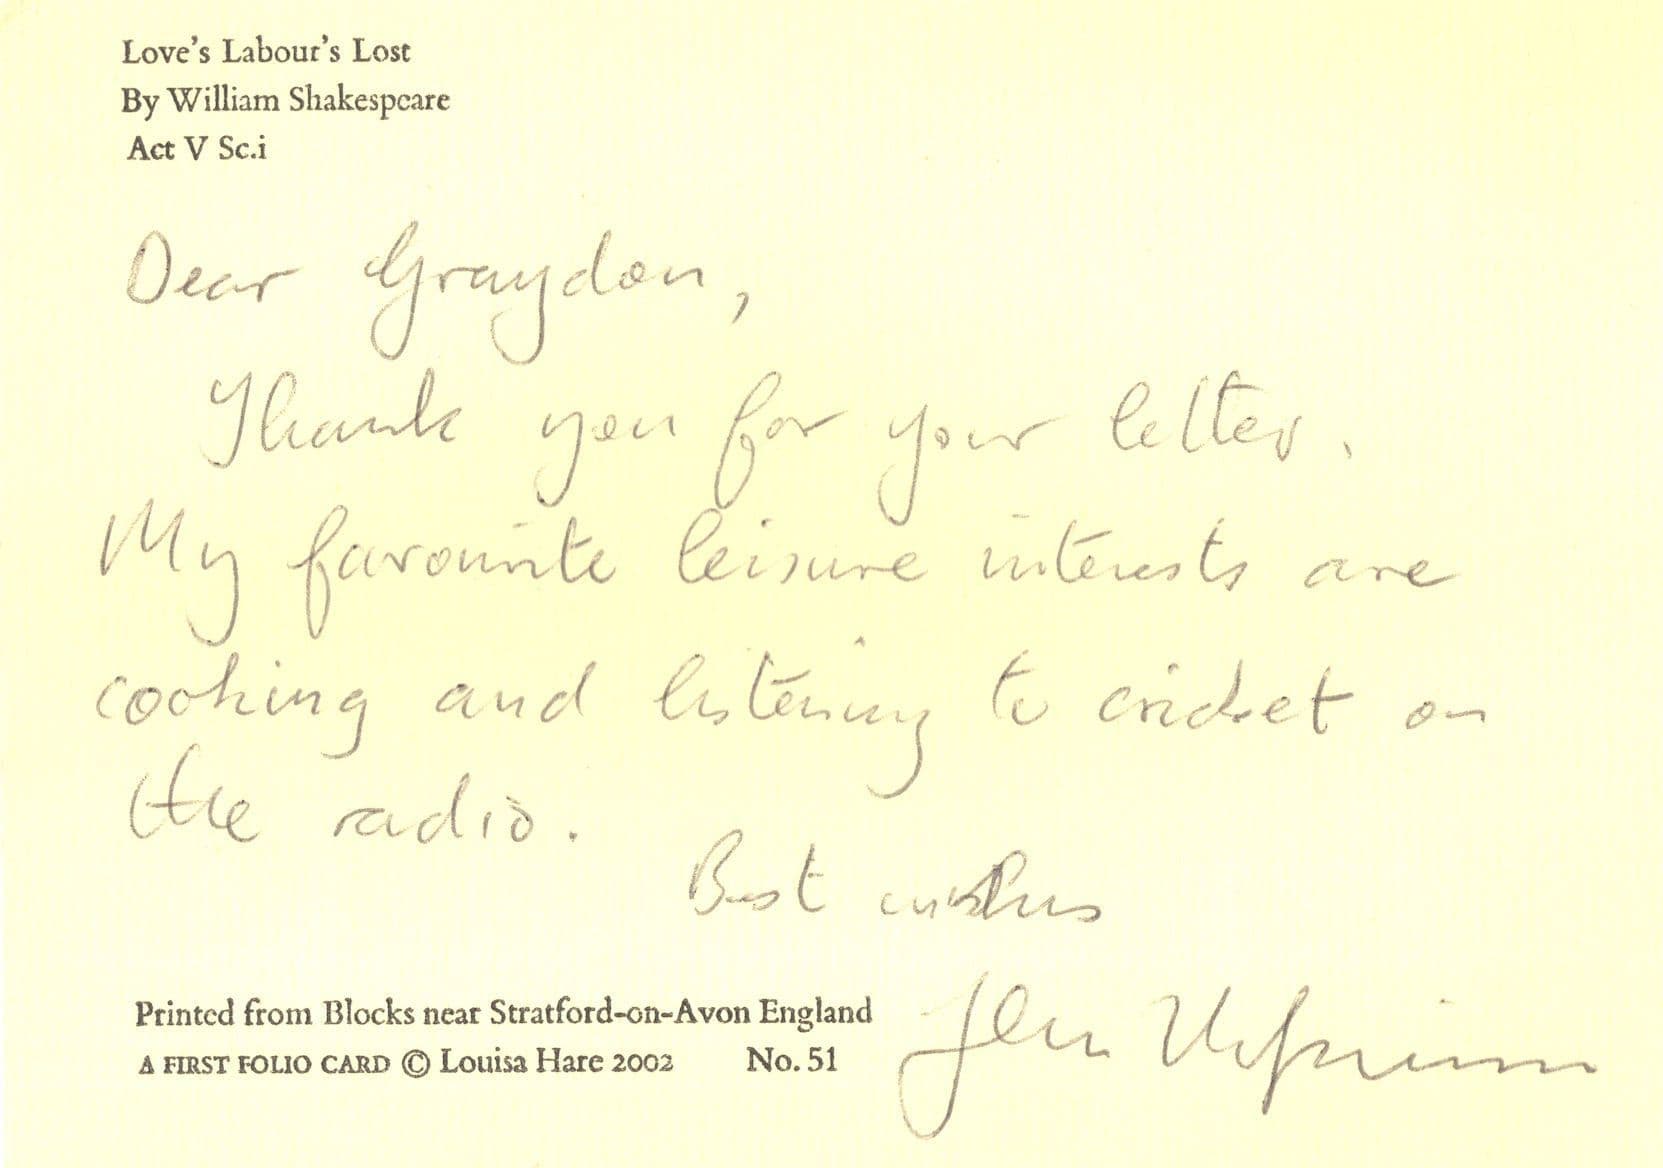 Love's Labour's Lost
By William Shakespeare
Act V Sc.i
Dear Graydon,
Thank you for your letter.
My favourite leisure interests are
cooking and listening to cricket on
the radio.
Best wishes
Printed from Blocks near Stratford-on-Avon England
A FIRST FOLIO CARD © Louisa Hare 2002 No. 51